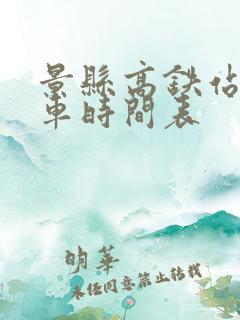 景縣高鉄佔
車時間表
明華
未经同意禁止转载